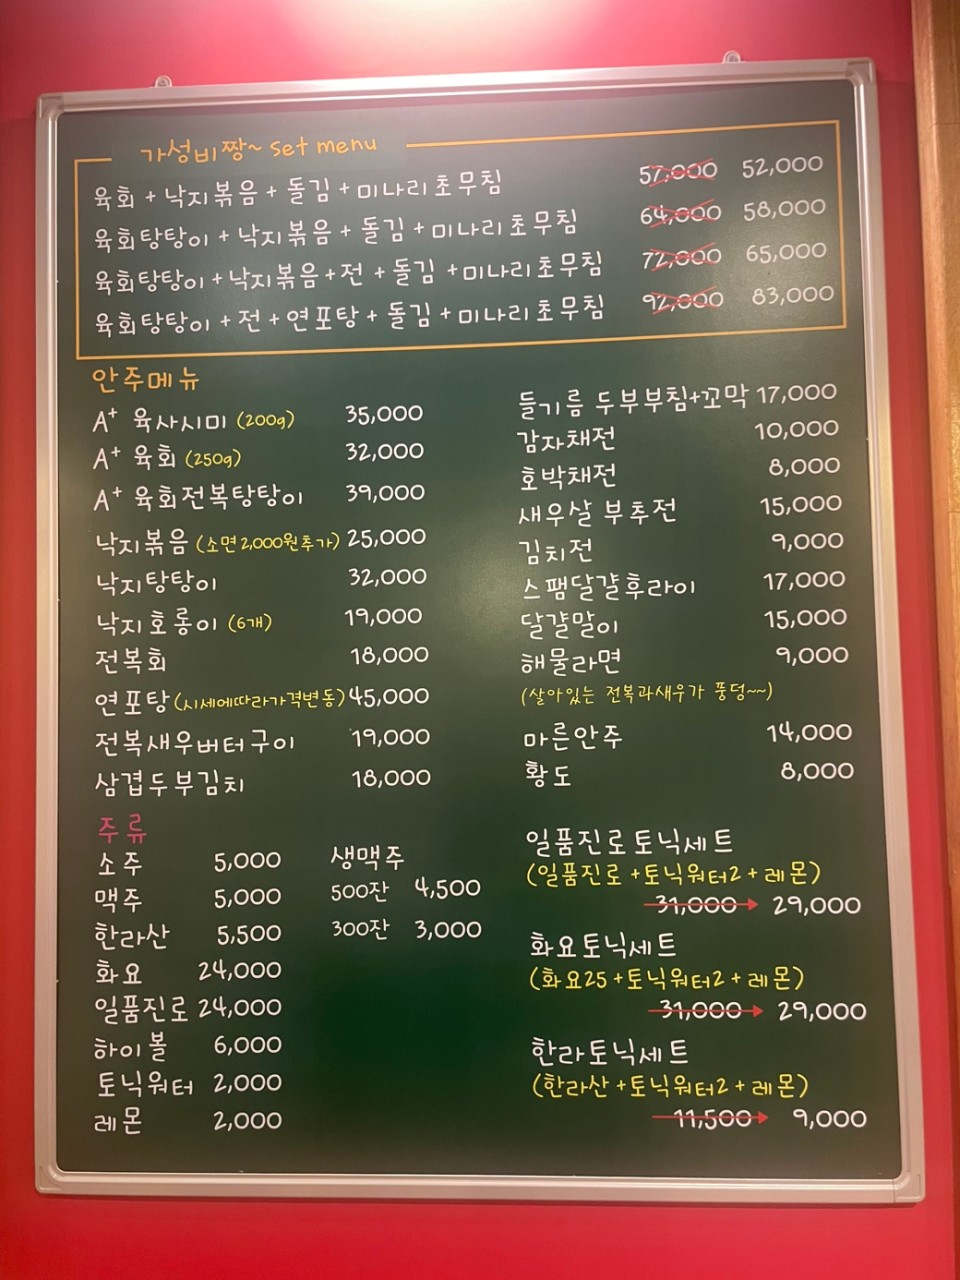 가성비짱~ set menu
육회 + 낙지볶음 + 돌김 + 미나리초무침 57,000 52,000
육회탕탕이 + 낙지볶음 + 돌김 + 미나리초무침 64,000 58,000
육회탕탕이 + 낙지볶음 + 전 + 돌김 + 미나리초무침 72,000 65,000
육회탕탕이 + 전 + 연포탕 + 돌김 + 미나리초무침 92,000 83,000
안주메뉴
A+ 육사시미 (200g) 35,000
A+ 육회 (250g) 32,000
A+ 육회전복탕탕이 39,000
낙지볶음 (소면 2,000원추가) 25,000
낙지탕탕이 32,000
낙지호롱이 (6개) 19,000
전복회 18,000
연포탕 (시세에따라가격변동) 45,000
전복새우버터구이 19,000
삼겹두부김치 18,000
들기름 두부부침+꼬막 17,000
감자채전 10,000
호박채전 8,000
새우살 부추전 15,000
김치전 9,000
스팸달걀후라이 17,000
달걀말이 15,000
해물라면 9,000
(살아있는 전복과새우가 풍덩~~)
마른안주 14,000
황도 8,000
주류
소주 5,000
맥주 5,000
한라산 5,500
화요 24,000
일품진로 24,000
하이볼 6,000
토닉워터 2,000
레몬 2,000
생맥주
500잔 4,500
300잔 3,000
일품진로토닉세트
(일품진로 +토닉워터2 + 레몬)
31,000 → 29,000
화요토닉세트
(화요25 +토닉워터2 + 레몬)
31,000 → 29,000
한라토닉세트
(한라산 +토닉워터2 + 레몬)
11,500 → 9,000